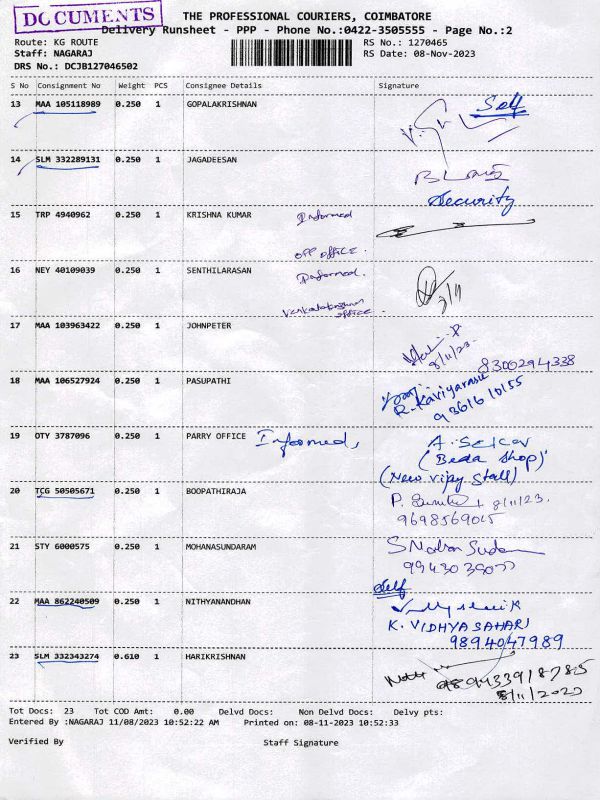 DOCUMENTS
THE PROFESSIONAL COURIERS, COIMBATORE
Delivery Runsheet - PPP - Phone No.:0422-3505555 - Page No.:2
Route: KG ROUTE
RS No.: 1270465
Staff: NAGARAJ
RS Date: 08-Nov-2023
DRS No.: DCJB127046502
S No Consignment No Weight PCS Consignee Details Signature
13 MAA 105118989 0.250 1 GOPALAKRISHNAN Self
14 SLM 332289131 0.250 1 JAGADEESAN
Security
15 TRP 4940962 0.250 1 KRISHNA KUMAR Informed
OFF OFFICE.
16 NEY 40109039 0.250 1 SENTHILARASAN Informed.
office.
17 MAA 103963422 0.250 1 JOHNPETER
8/11/23.
8300294338
18 MAA 106527924 0.250 1 PASUPATHI
R. Kaviyarasu
9361610155
19 OTY 3787096 0.250 1 PARRY OFFICE Informed,
(Beda shop)
(New vijay stall)
20 TCG 50505671 0.250 1 BOOPATHIRAJA
8/11/23.
9698569015
21 STY 6000575 0.250 1 MOHANASUNDARAM
Self
22 MAA 862240509 0.250 1 NITHYANANDHAN
K. VIDHYASAHARI
9894047989
23 SLM 332343274 0.610 1 HARIKRISHNAN
8/11/2023
Tot Docs: 23 Tot COD Amt: 0.00 Delvd Docs: Non Delvd Docs: Delvy pts:
Entered By :NAGARAJ 11/08/2023 10:52:22 AM Printed on: 08-11-2023 10:52:33
Verified By Staff Signature